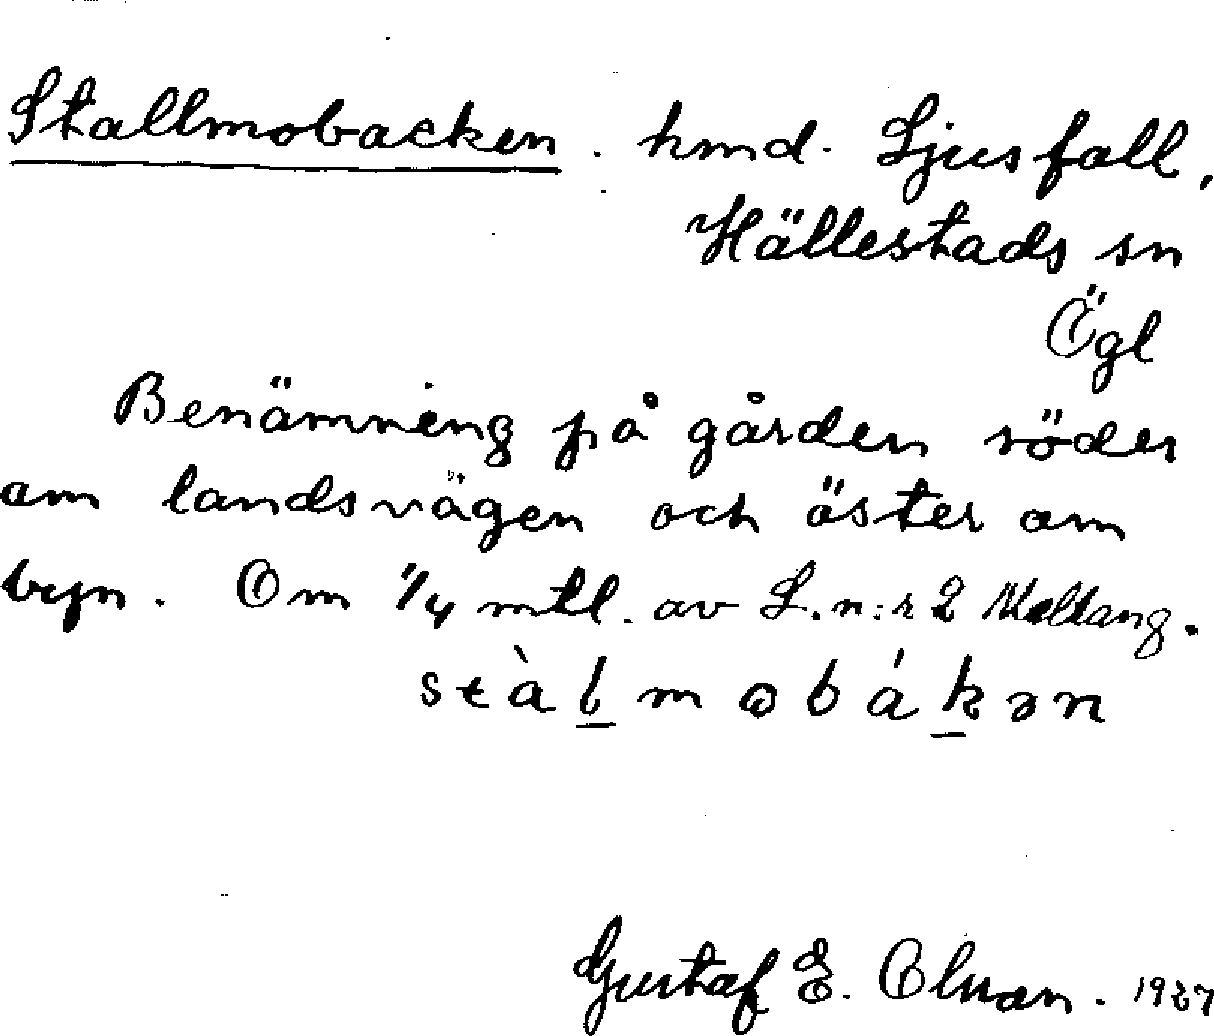 Stallmobacken. hmd. Ljusfall,
Hällestads sn
Ögl
Benämning på gården söder
om landsvägen och öster om
byn. Om 1/4 mtl. av L.n:r 2
stàlmobákən
Gustaf E. Olsson. 1927